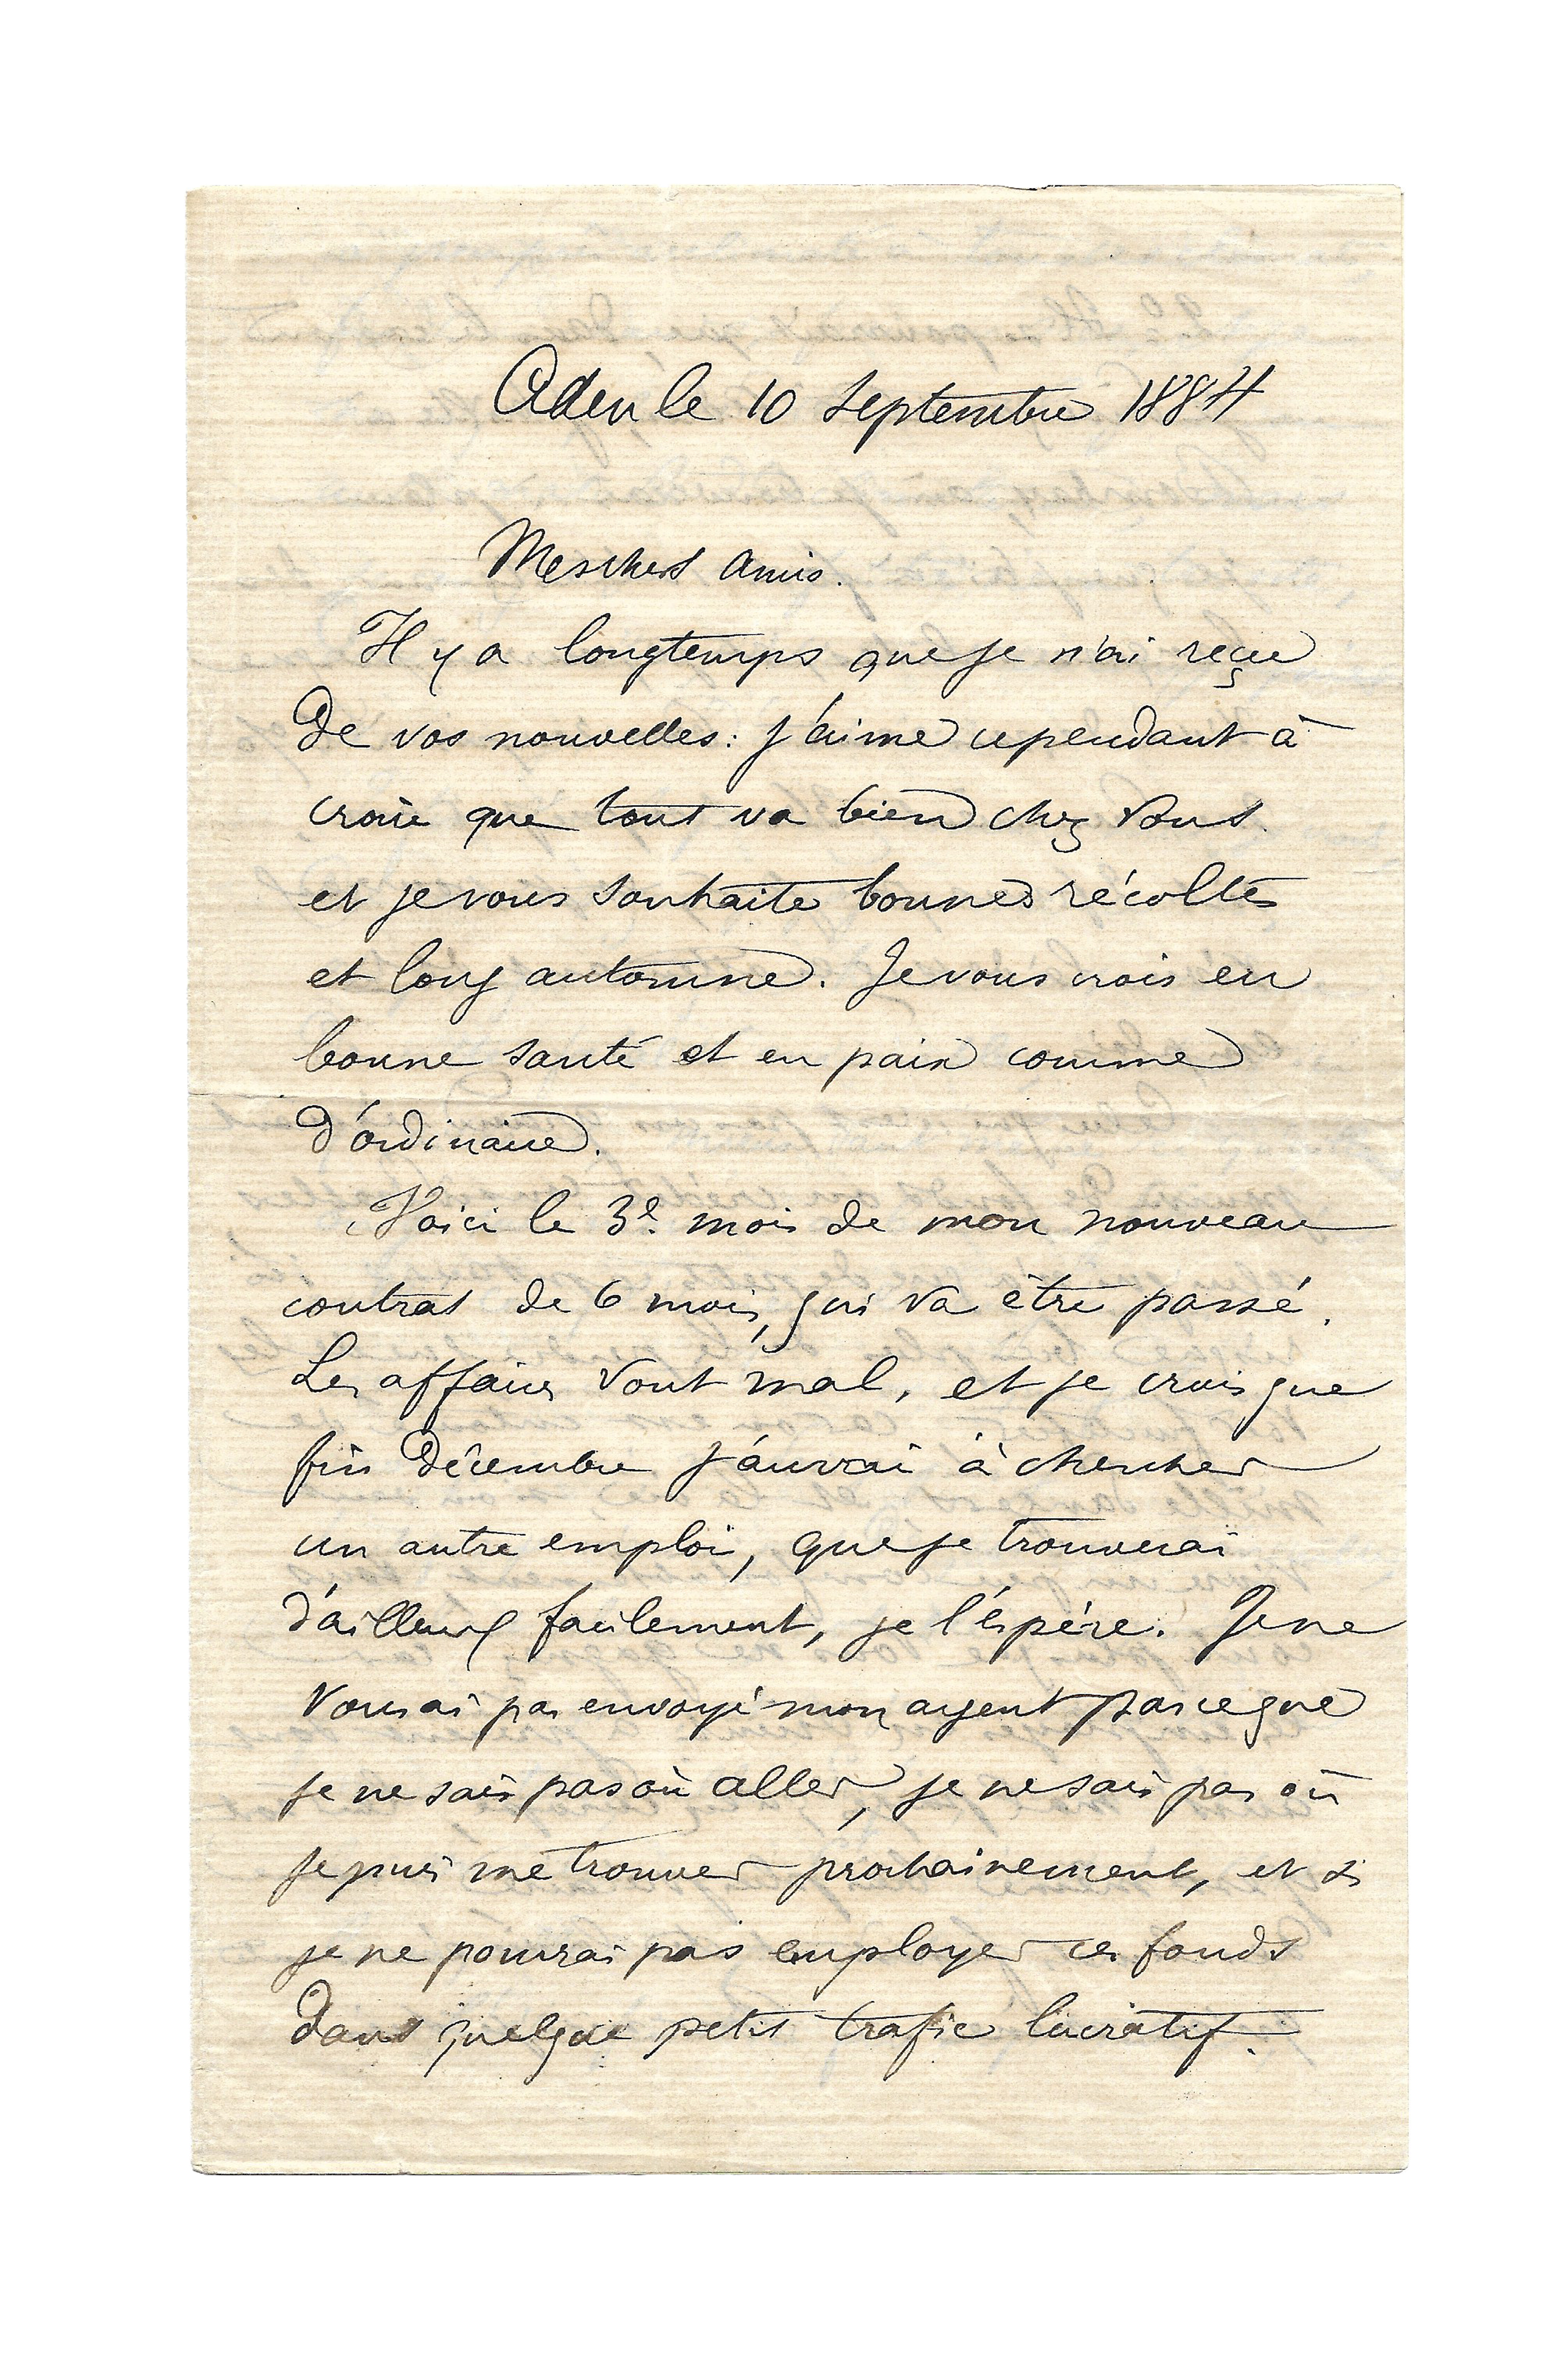 Aden le 10 septembre 1884
Mes chers amis.
Il y a longtemps que je n'ai reçu
de vos nouvelles: j'aime cependant à
croire que tout va bien chez vous.
et je vous souhaite bonnes récoltes
et long automne. Je vous crois en
bonne santé et en paix comme
d'ordinaire.
Voici le 3e. mois de mon nouveau
contrat de 6 mois, qui va être passé.
Les affaires vont mal, et je crois que
fin décembre j'aurai à chercher
un autre emploi, que je trouverai
d'ailleurs facilement, je l'espère. Je ne
vous ai pas envoyé mon argent parce que
je ne sais pas où aller, je ne sais pas où
je puis me trouver prochainement, et si
je ne pourrai pas employer ces fonds
dans quelque petit trafic lucratif.